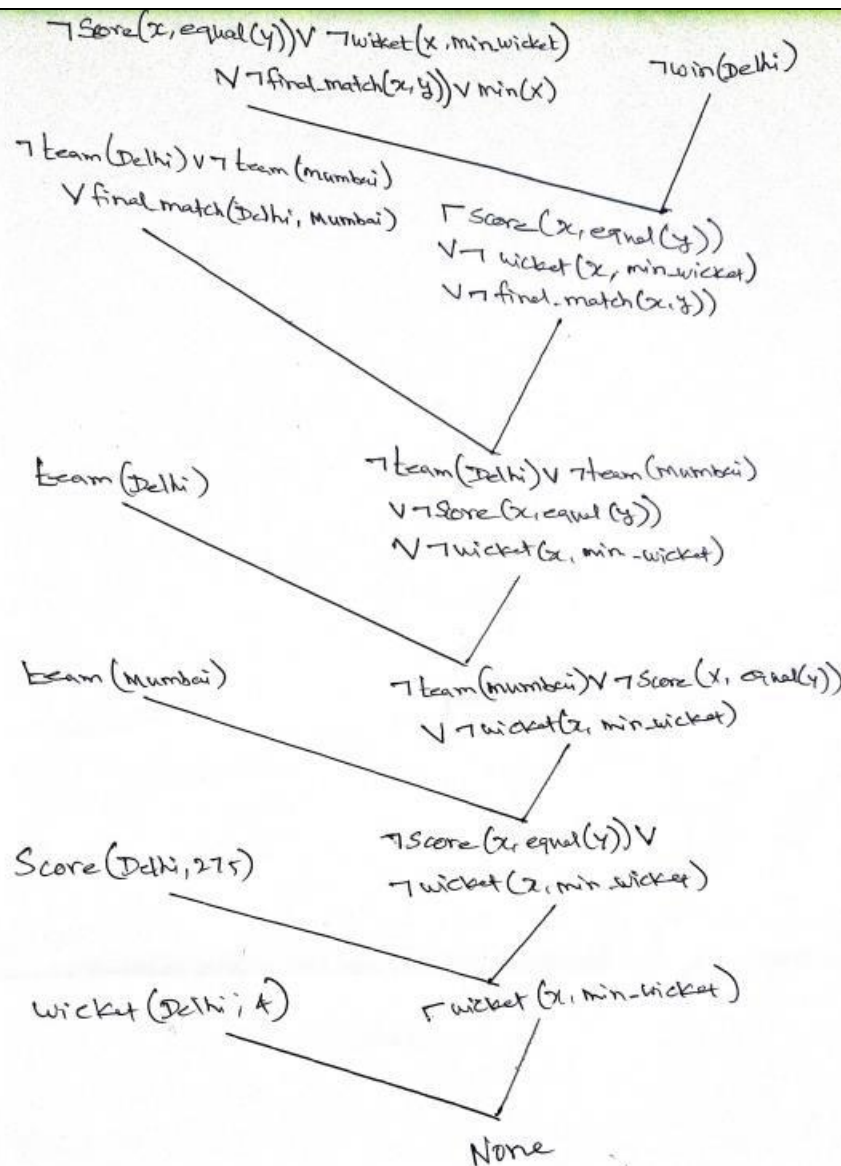 ¬Score(x, equal(y)) V ¬wicket(x, min_wicket)
V ¬final_match(x, y)) V min(x)
¬win(Delhi)
¬team(Delhi) V ¬team(mumbai)
V final_match(Delhi, Mumbai)
¬Score(x, equal(y))
V ¬ wicket(x, min_wicket)
V ¬ final_match(x, y))
team(Delhi)
¬team(Delhi) V ¬team(mumbai)
V ¬Score(x, equal(y))
V ¬wicket(x, min_wicket)
team(Mumbai)
¬team(mumbai) V ¬Score(x, equal(y))
V ¬wicket(x, min_wicket)
Score(Delhi, 275)
¬Score(x, equal(y)) V
¬wicket(x, min_wicket)
wicket(Delhi, 4)
¬wicket(x, min_wicket)
None